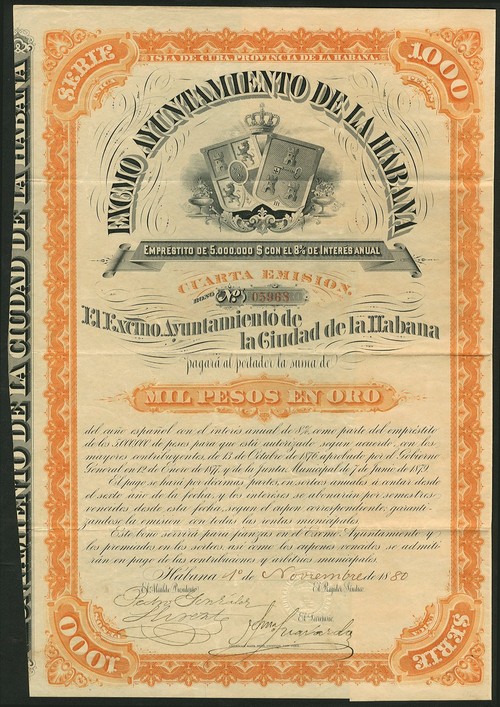 SERIE
1000
ISLA DE CUBA, PROVINCIA DE LA HABANA.
EXCMO AYUNTAMIENTO DE LA HABANA
EMPRESTITO DE 5.000.000 $ CON EL 8% DE INTERES ANUAL
CUARTA EMISION.
BONO Nº 05968
El Excmo. Ayuntamiento de
la Ciudad de la Habana
pagará al portador la suma de
MIL PESOS EN ORO
del cuño español con el interés anual de 8%, como parte del empréstito
de los 5.000.000 de pesos para que está autorizado, segun acuerdo con los
mayores contribuyentes, de 13 de Octubre de 1876 aprobado por el Gobierno
General en 12 de Enero de 1877, y de la Junta Municipal de 7 de Junio de 1879.
El pago se hará por decimas partes, en sorteos anuales á contar desde
el sexto año de la fecha, y los intereses se abonarán por semestres
vencidos desde esta fecha, segun el cupon correspondiente, garanti-
zandose la emision con todas las rentas municipales.
Este bono servirá para fianzas en el Excmo. Ayuntamiento y
los premiados en los sorteos asi como los cupones vencidos se admiti-
rán en pago de las contribuciones y arbitrios municipales.
Habana 1º de Noviembre de 1880
El Alcalde Presidente
El Regidor Síndico
El Secretario
1000
SERIE
AMIENTO DE LA CIUDAD DE LA HABANA